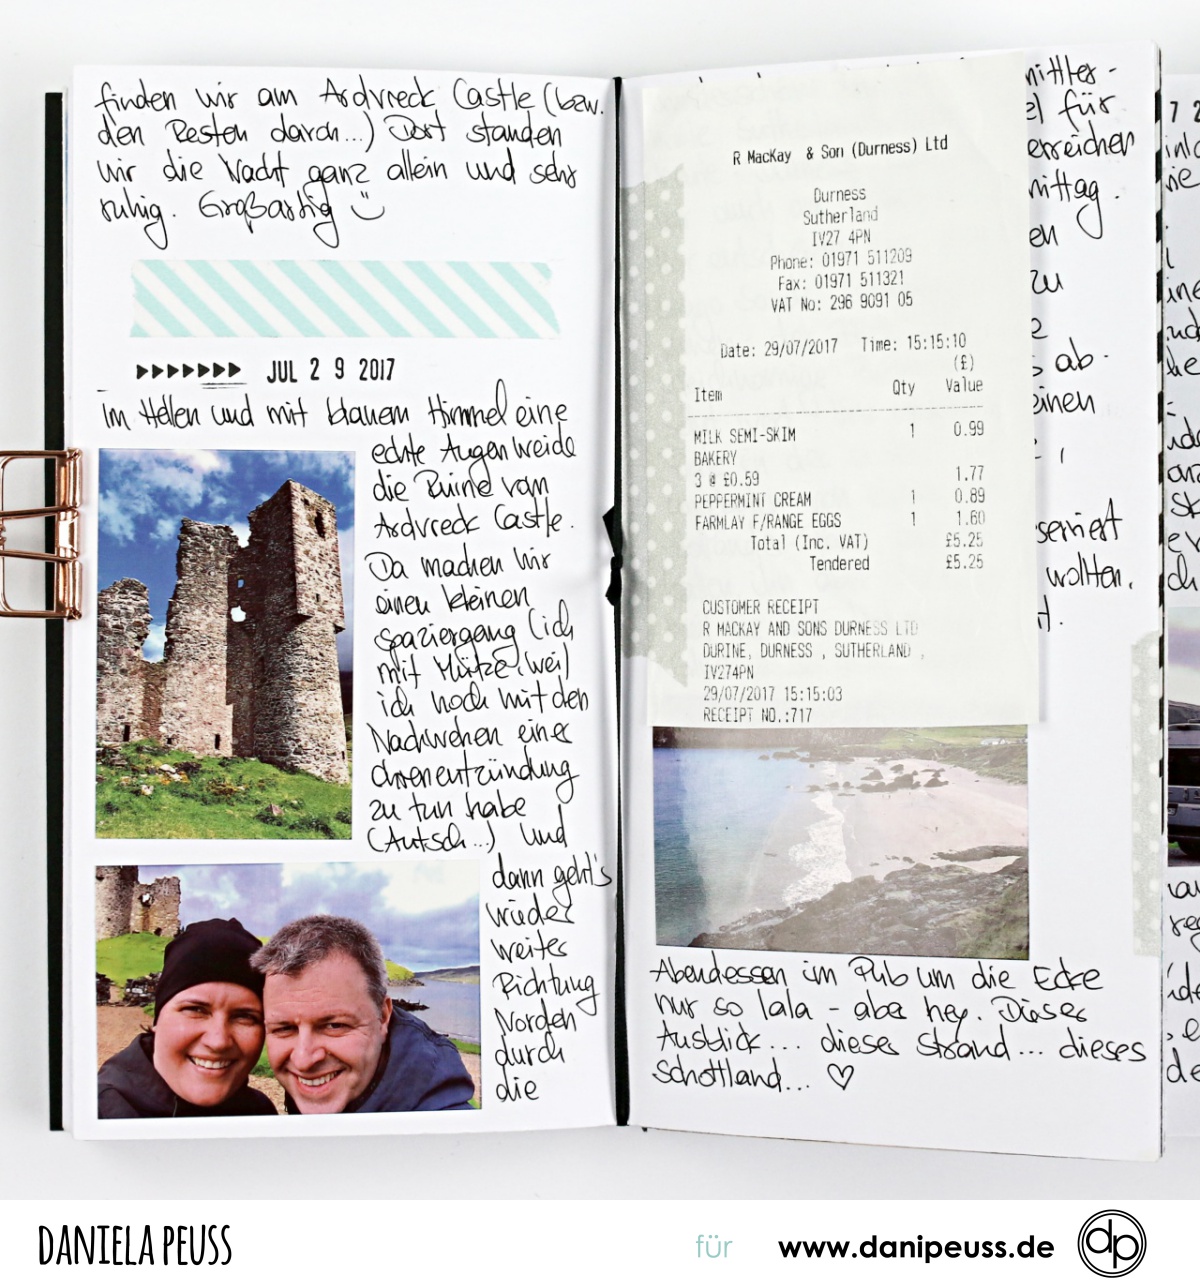 finden wir am Ardvreck Castle (bzw.
den Resten davon...) Dort standen
wir die Nacht ganz allein und sehr
ruhig. Großartig
JUL 2 9 2017
Im Hellen und mit blauem Himmel eine
echte Augenweide
die Ruine vom
Ardvreck Castle.
Da machen wir
einen kleinen
Spaziergang (ich
mit Mütze, weil
ich noch mit den
Nachwehen einer
Ohrenentzündung
zu tun habe
(Autsch...) und
dann geht's
wieder
weiter
Richtung
Norden
durch
die
R MacKay & Son (Durness) Ltd
Durness
Sutherland
IV27 4PN
Phone: 01971 511209
Fax: 01971 511321
VAT No: 296 9091 05
Date: 29/07/2017 Time: 15:15:10
(£)
Item Qty Value
MILK SEMI-SKIM 1 0.99
BAKERY
3 @ £0.59 1.77
PEPPERMINT CREAM 1 0.89
FARMLAY F/RANGE EGGS 1 1.60
Total (Inc. VAT) £5.25
Tendered £5.25
CUSTOMER RECEIPT
R MACKAY AND SONS DURNESS LTD
DURINE, DURNESS , SUTHERLAND ,
IV274PN
29/07/2017 15:15:03
RECEIPT NO.:717
für
erreichen
zu
ab-
wollten.
Abendessen im Pub um die Ecke
nur so lala - aber hey. Dieser
Ausblick... dieser Strand... dieses
Schottland... ♡
DANIELA PEUSS
für www.danipeuss.de dp